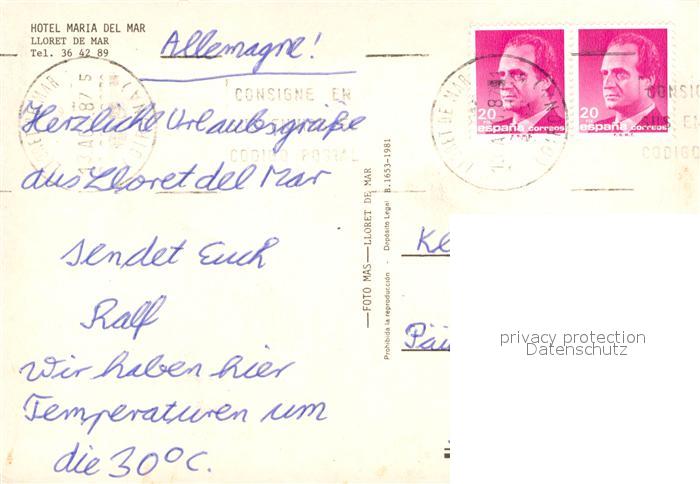 HOTEL MARIA DEL MAR
LLORET DE MAR
Tel. 36 42 89
Allemagne!
Herzliche Urlaubsgrüße
aus Lloret del Mar
sendet Euch
Ralf
Wir haben hier
Temperaturen um
die 30°C.
FOTO MAS — LLORET DE MAR
Prohibida la reproducción - Depósito Legal B. 1653-1981
LLORET DE MAR
87
CONSIGNE EN
CODIGO POSTAL
20
España correos
20
España correos
LLORET DE MAR
CONSIG
SUS EN
CODIGO
privacy protection
Datenschutz